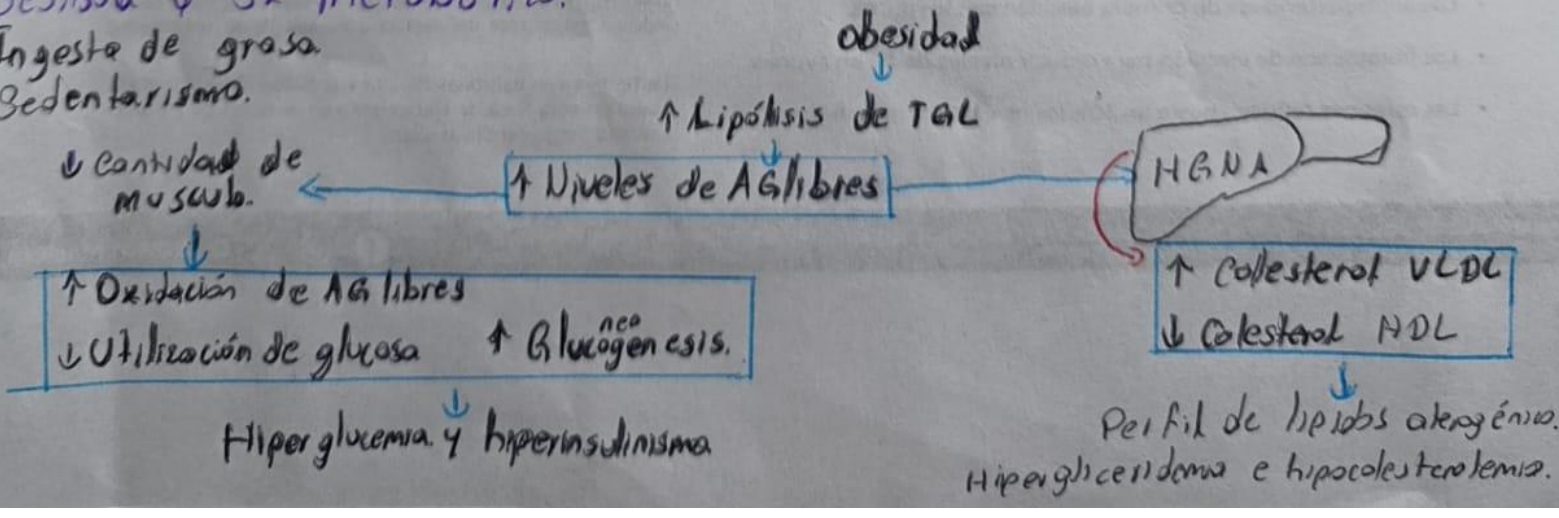 y su metabolismo.
Ingesta de grasa
Sedentarismo.
obesidad
↓
↑ Lipólisis de TGL
↓
↑ Niveles de AG libres
↓ Cantidad de
musculo.
↓
↑ Oxidación de AG libres
↓ Utilización de glucosa ↑ Gluconeogénesis.
↓
Hiperglucemia y hiperinsulinismo
HGNA
↑ Collesterol VLDL
↓ Colesterol HDL
↓
Perfil de lipidos aterogénico.
Hipergliceridemia e hipocolesterolemia.